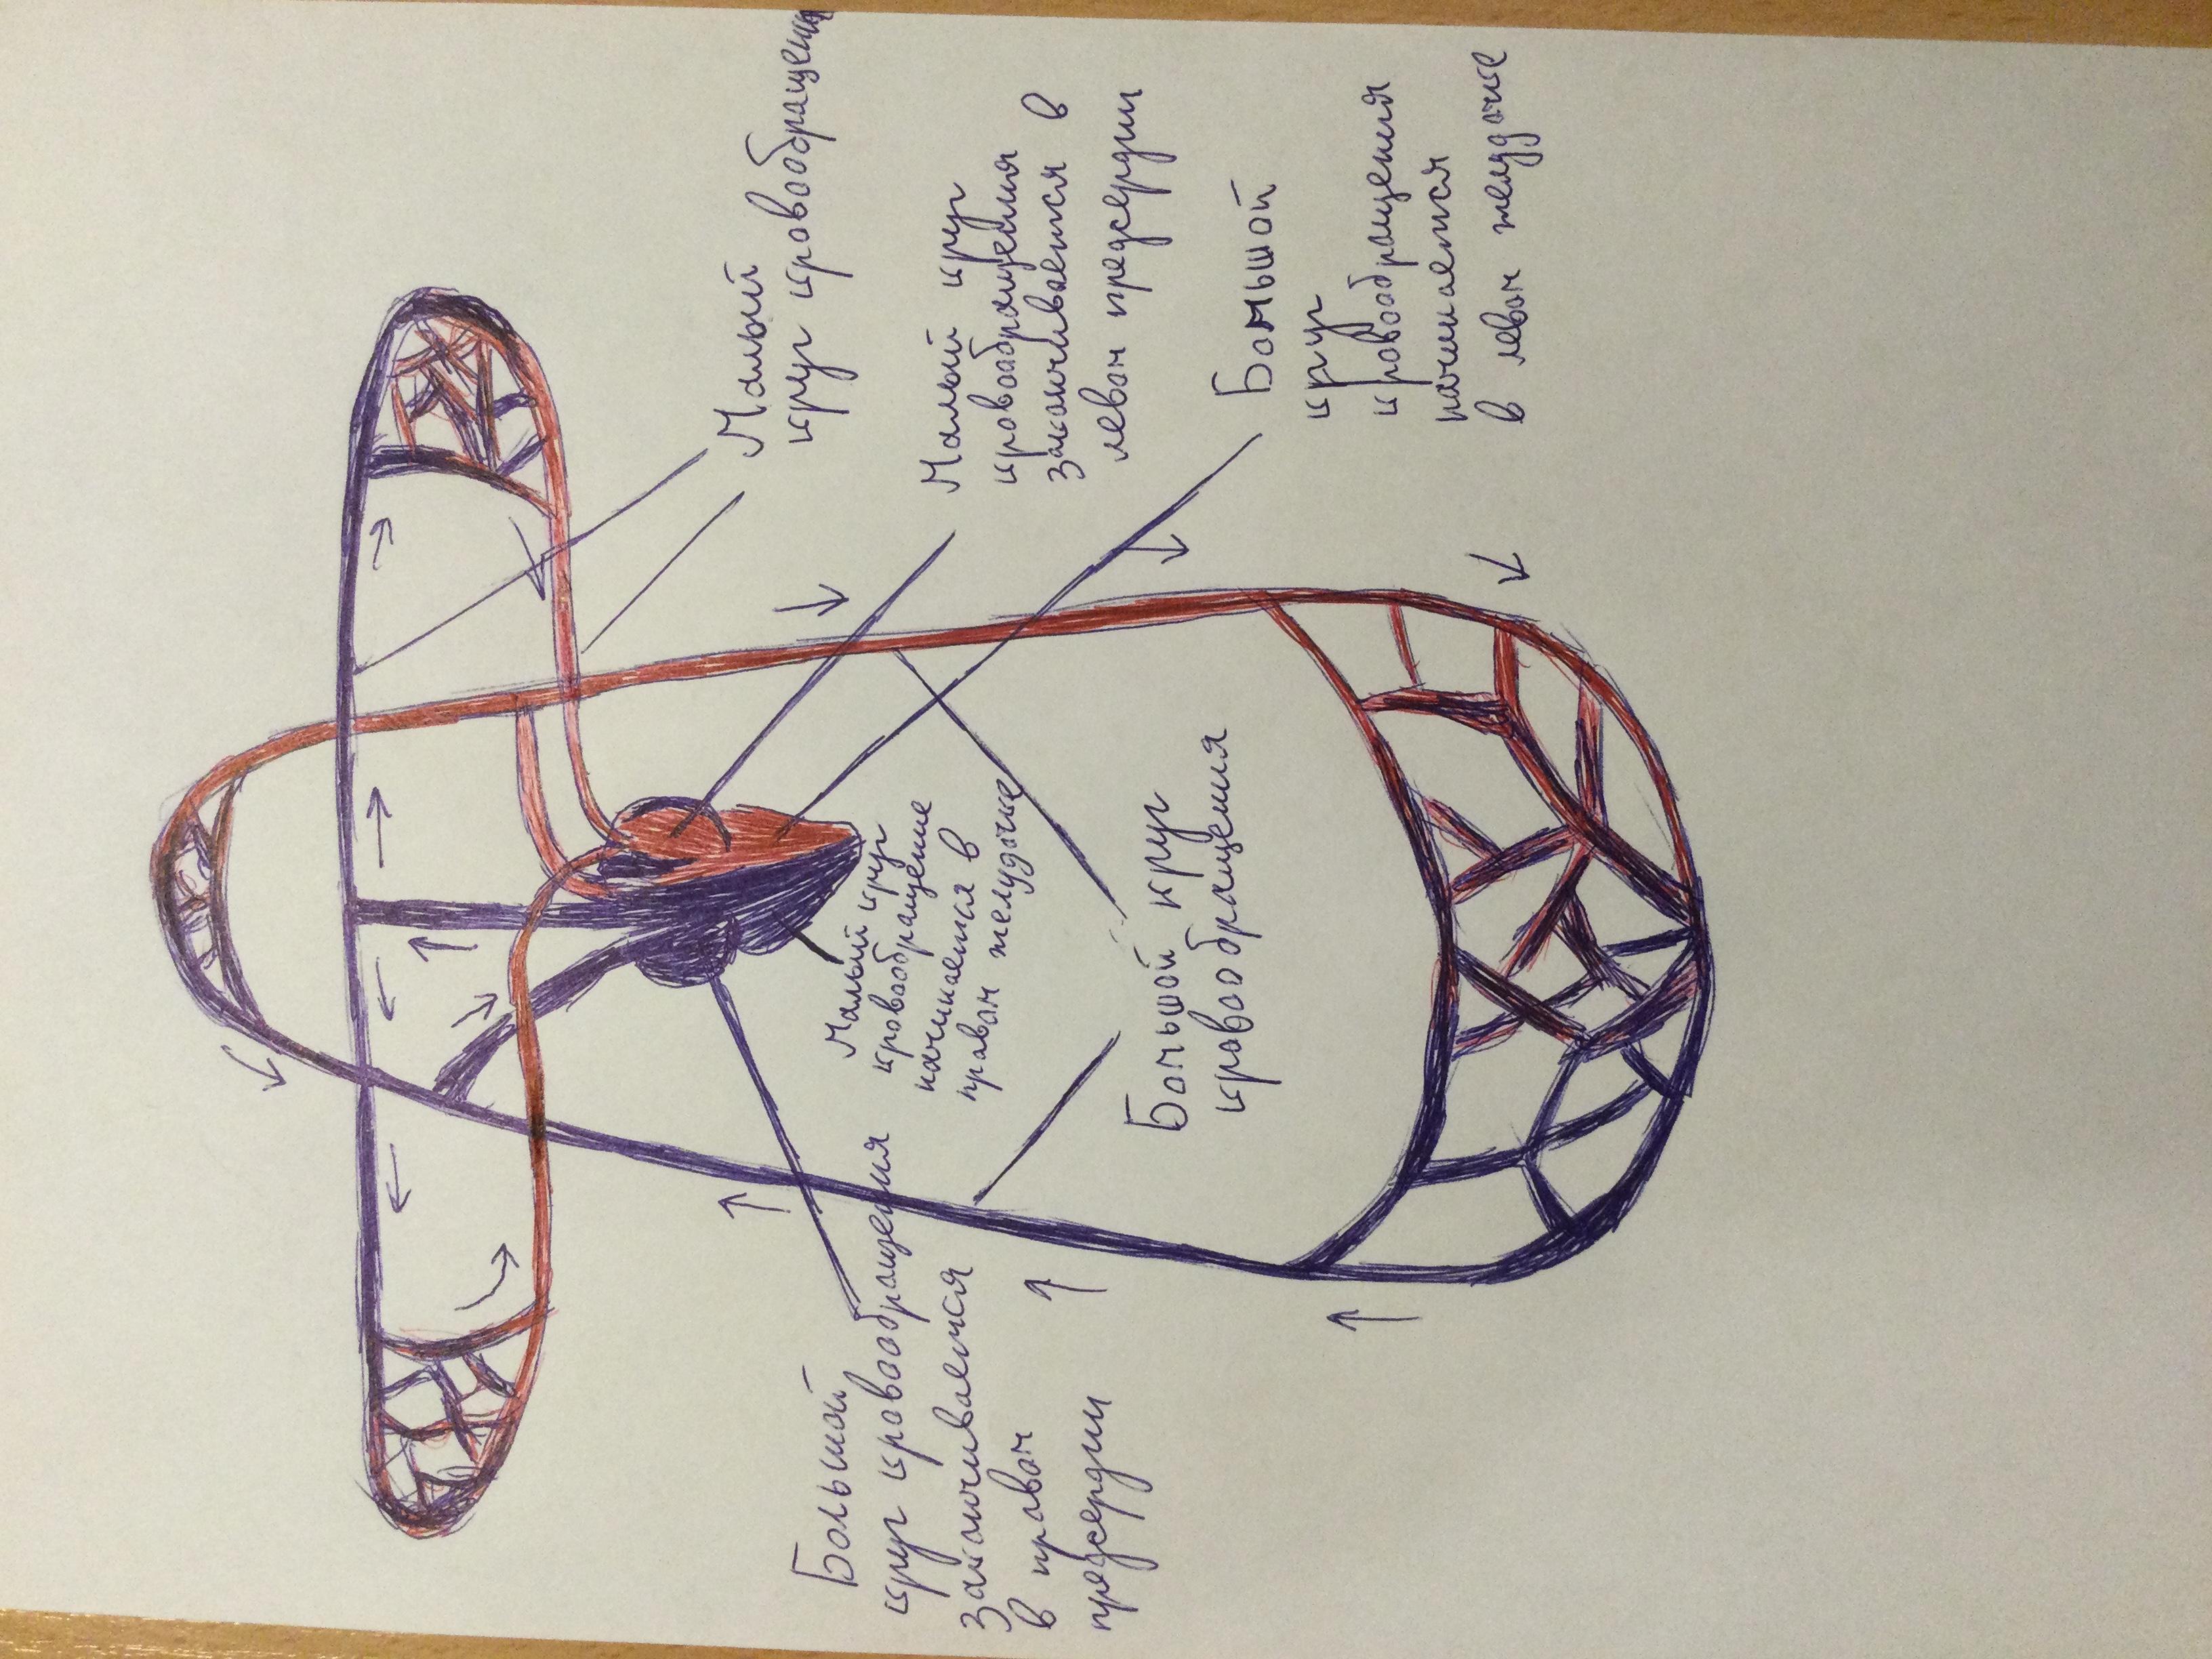 Малый
круг кровообращения
Малый круг
кровообращения
заканчивается в
левом предсердии
Большой
круг
кровообращения
начинается
в левом желудочке
Малый круг
кровообращение
начинается в
правом желудочке
Большой круг
кровообращения
Большой
круг кровообращения
заканчивается
в правом
предсердии